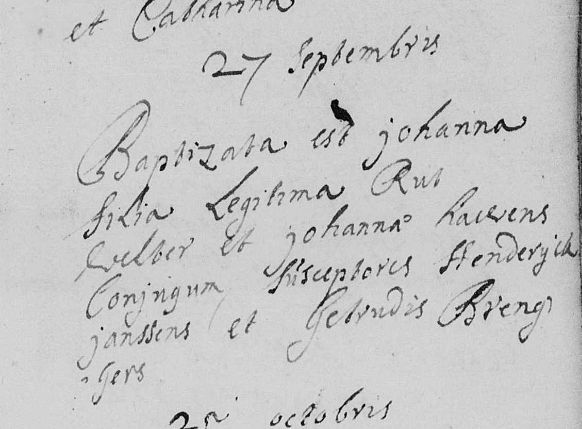 et Catharina
27 Septembris
Baptizata est johanna
filia Legitima Rut
welter et johannae haevens
Conjugum, susceptores Henderijck
janssens et Getrudis Breng
gers
25 octobris